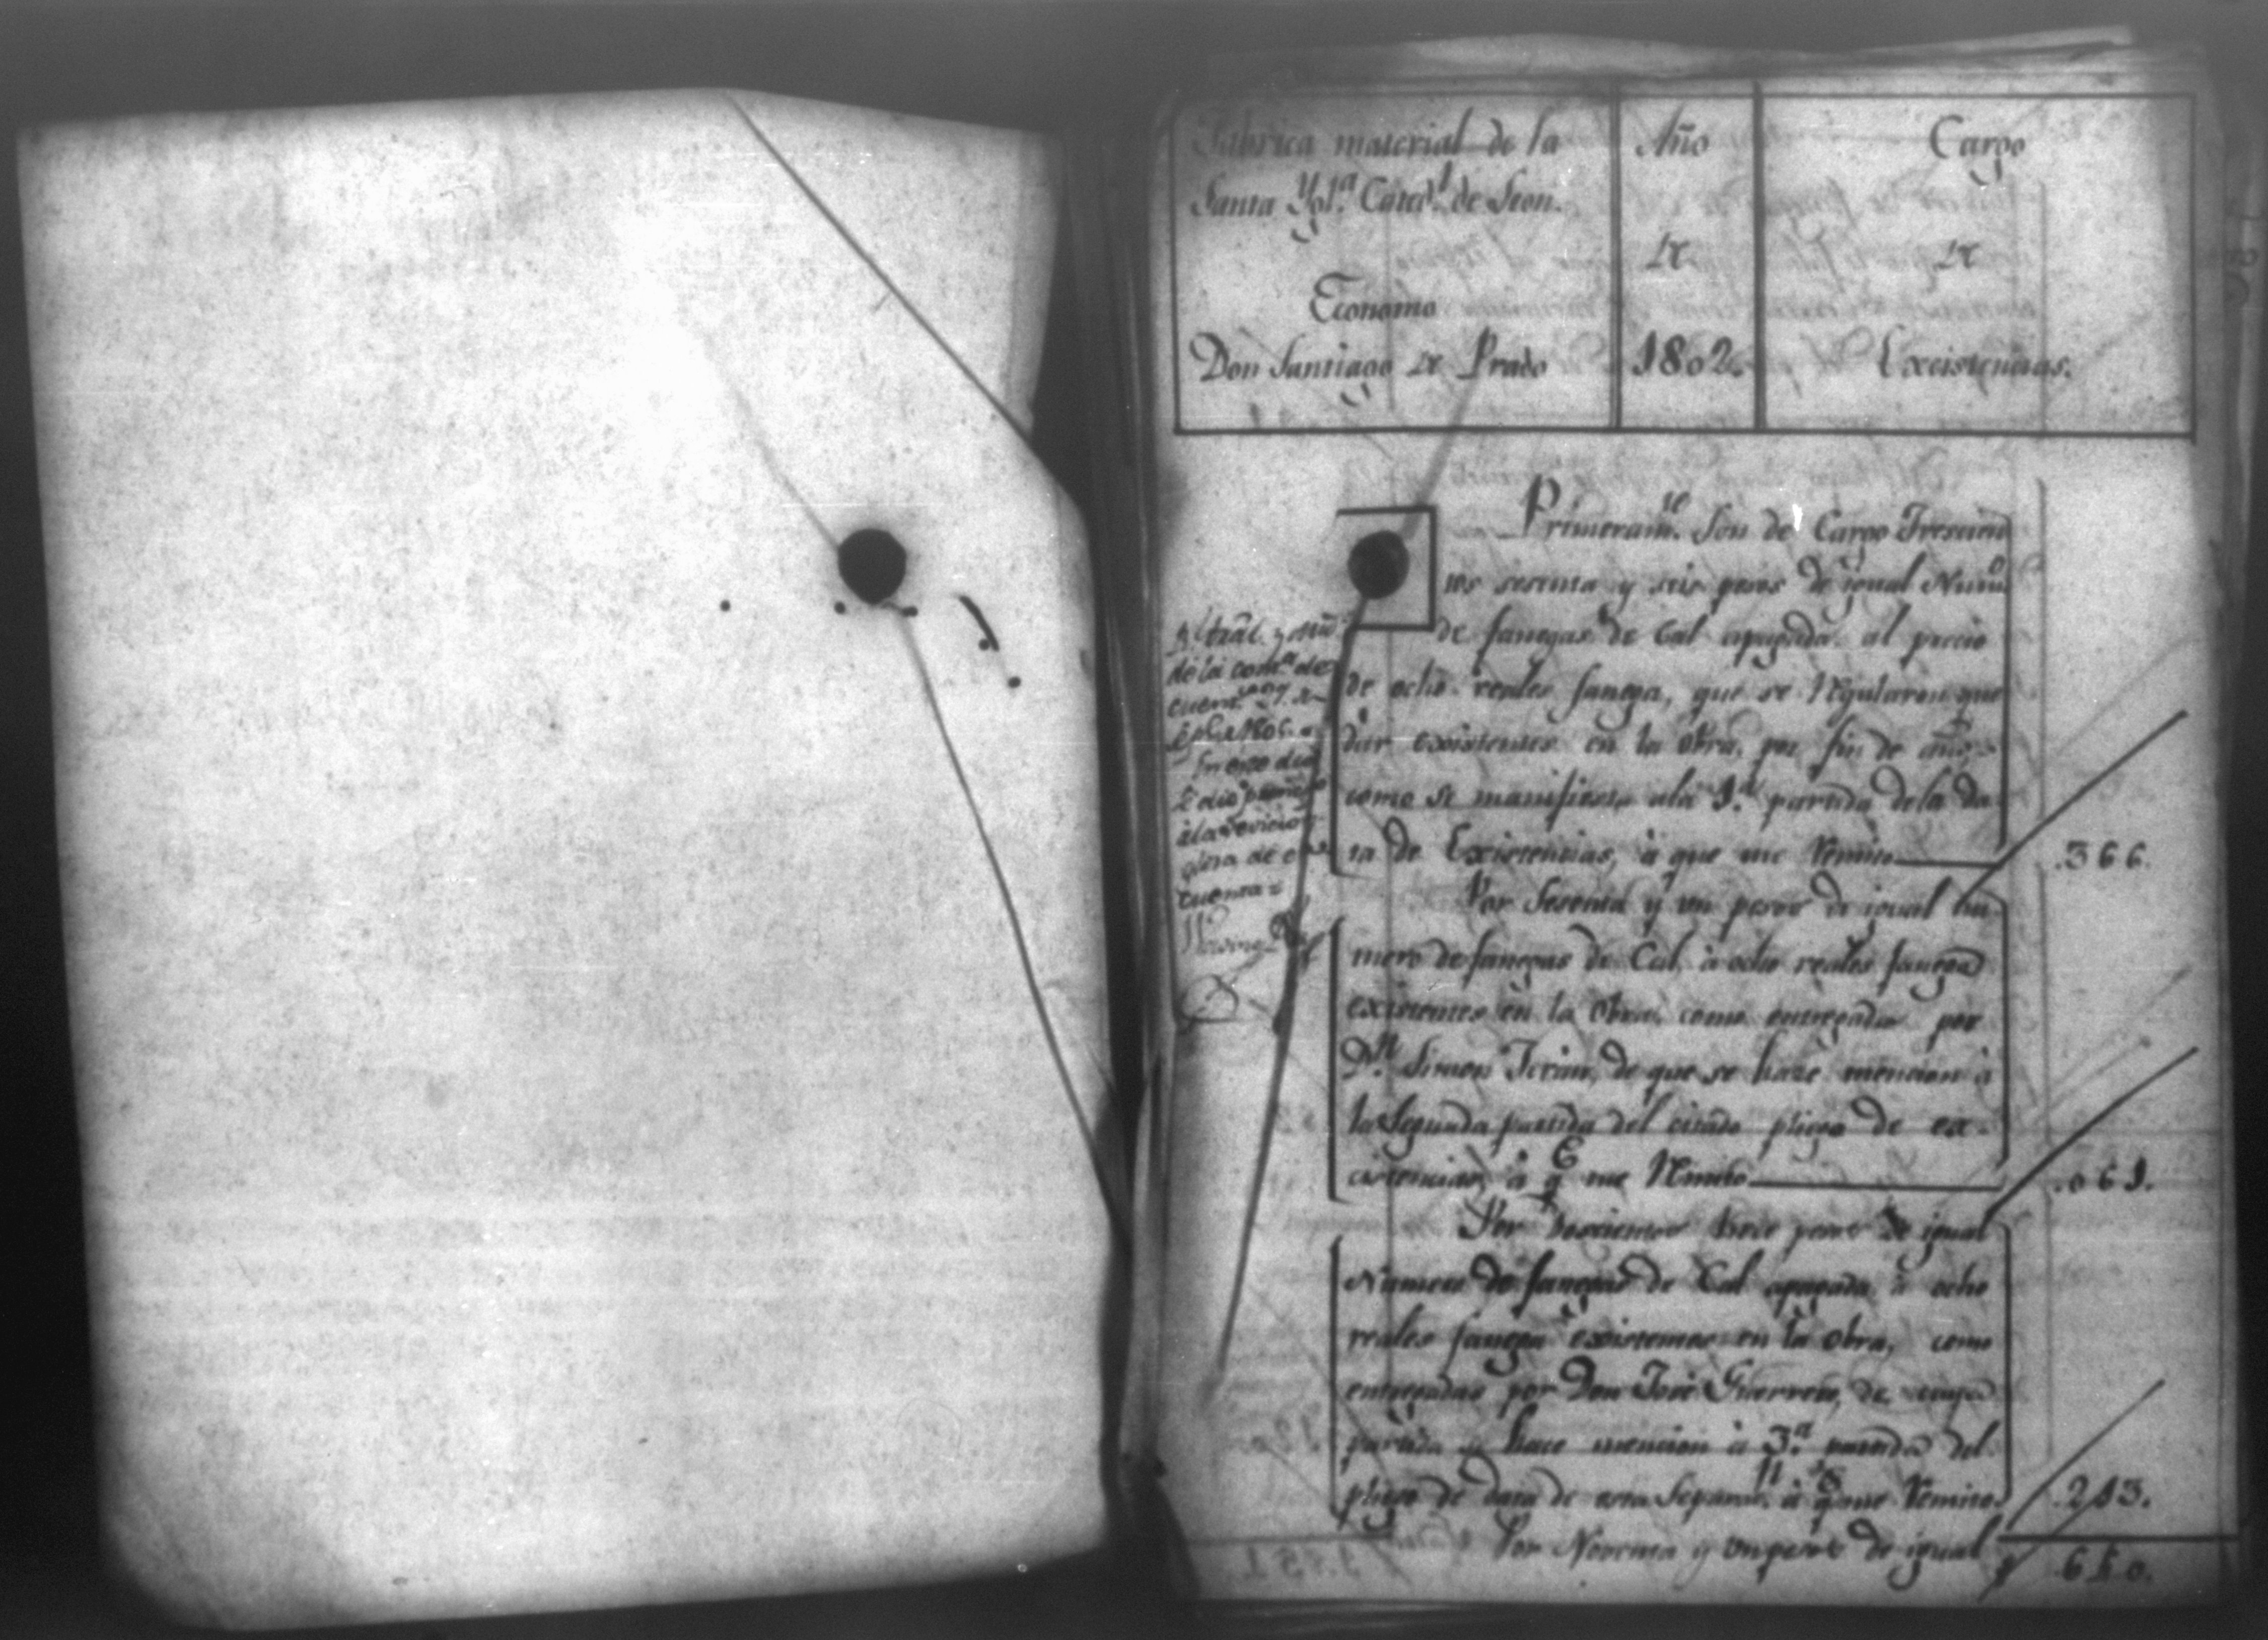 Fabrica material de la
Santa Ygl.ª Cated.l de Leon.
Economo
Don Santiago de Prado
Año
de
1802.
Cargo
de
Excistencias.
Primeram.te Son de Cargo Trescien
tos sesenta y seis pesos de igual Num.o
de fanegas de Cal apagada al precio
de ocho reales fanega, que se Regularon que
dar exsistentes en la obra, por fin de año,
como se manifiesta ala 1.ª partida dela Da
ta de Excistencias, à que me Remito .366.
Por Sesenta y un pesos de igual nu
mero de fanegas de Cal, à ocho reales fanega
existentes en la Obra, como entregadas por
D.n Simon Teran, de que se haze mencion à
la Segunda partida del citado pliego de ex-
cistencias, à q.e me Remito .061.
Por Doscientos trece pesos de igual
Numero de fanegas de Cal apagada à ocho
reales fanega exsistentes en la obra, como
entregadas por Don José Guerrero, de cuya
partida se hace mencion à 3.ª partida del
pliego de data de esta à q.e me Remito. .213.
Por Noventa y un pesos de igual .640.
de la cont.ª de
cuent.s 27 de
En este dia
se dio
à la
glosa de esta
cuenta